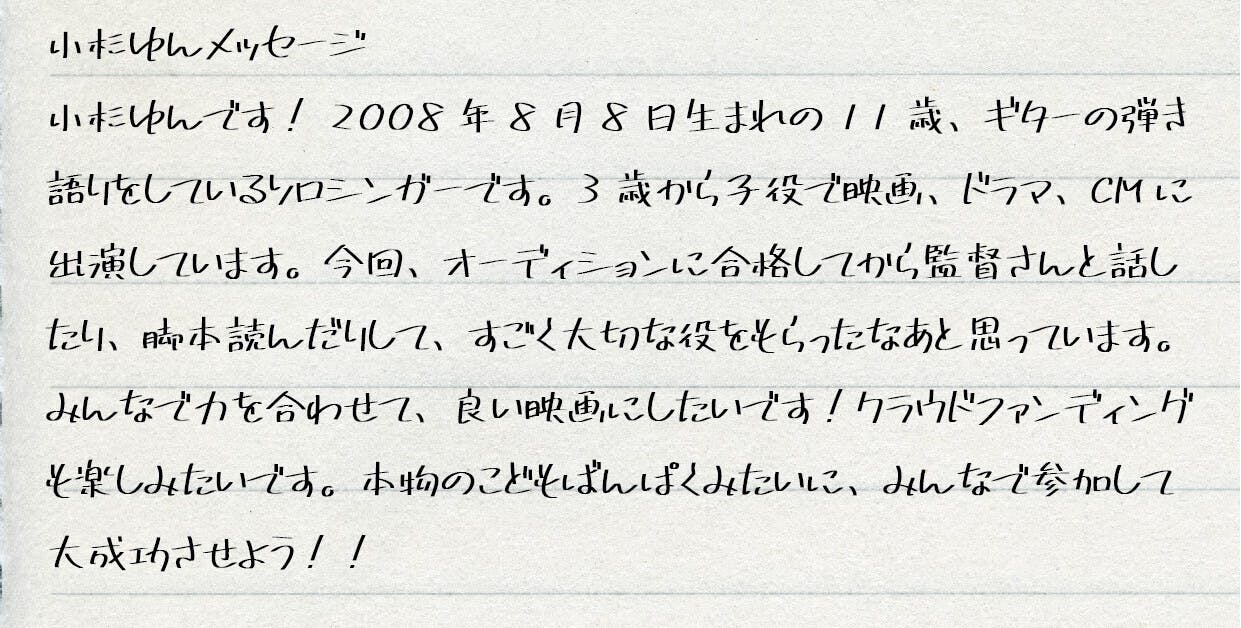 小杉ゆんメッセージ
小杉ゆんです！2008年8月8日生まれの11歳、ギターの弾き
語りをしているソロシンガーです。3歳から子役で映画、ドラマ、CMに
出演しています。今回、オーディションに合格してから監督さんと話し
たり、脚本読んだりして、すごく大切な役をもらったなあと思っています。
みんなで力を合わせて、良い映画にしたいです！クラウドファンディング
も楽しみたいです。本物のこどもばんぱくみたいに、みんなで参加して
大成功させよう！！